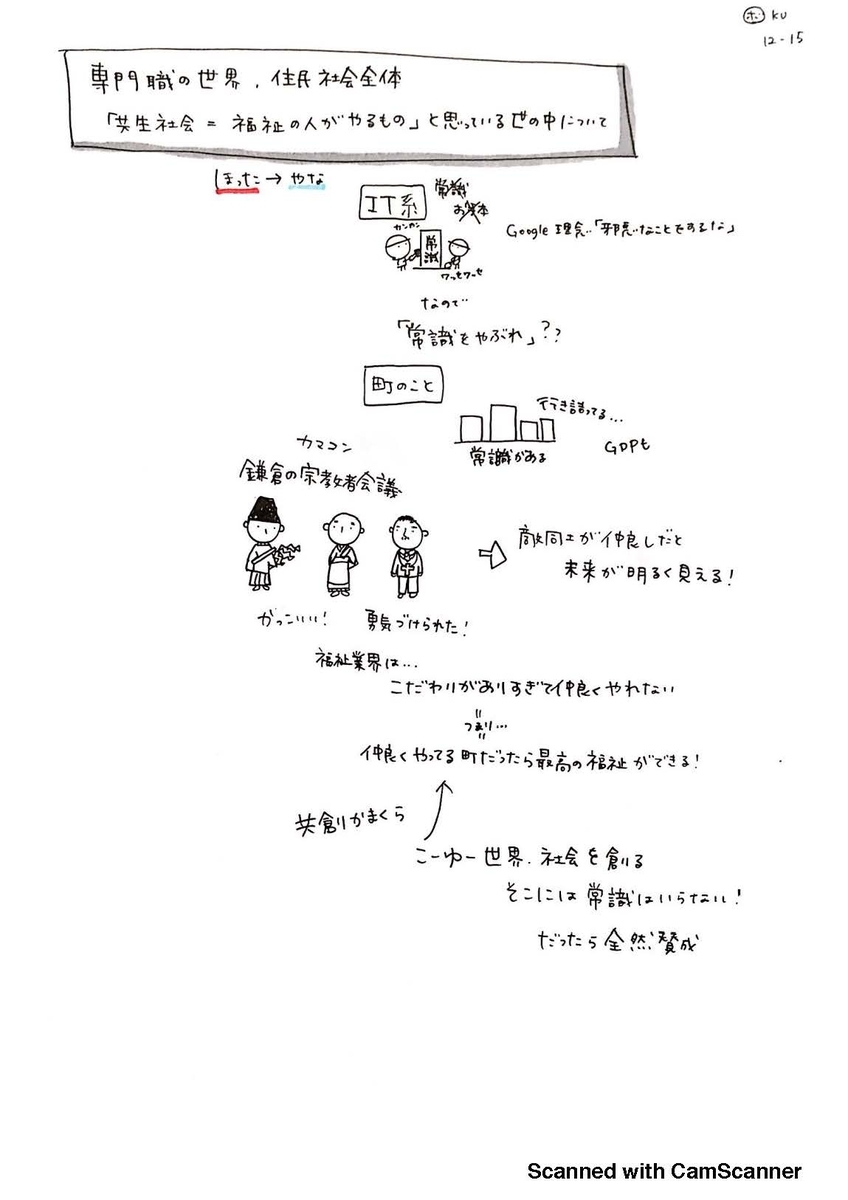 ホ KU
12-15
専門職の世界、住民社会全体
「共生社会 = 福祉の人がやるもの」と思っている世の中について
ほった → やな
IT系
常識
カンカン
常識
ワっセワーセ
Google 理念..「邪悪なことをするな」
なので
「常識をやぶれ」??
町のこと
行き詰ってる...
常識がある
GDPも
カマコン
鎌倉の宗教者会議
敵同士が仲良しだと
未来が明るく見える!
かっこいい! 勇気づけられた!
福祉業界は...
こだわりがありすぎて仲良くやれない
つまり...
仲良くやってる町だったら最高の福祉ができる!
共創かまくら
こーゆー世界、社会を創る
そこには常識はいらない!
だったら全然賛成
Scanned with CamScanner